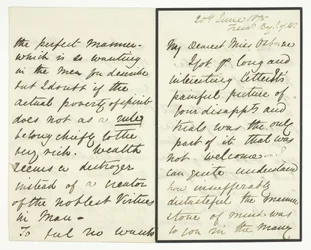 2nd June
My Dearest Miss
I got yr long and
interesting letter. Its
painful picture of
your disappts and
trials was the only
part of it that was
not welcome. I
can quite understand
how insufferably
distasteful the
tone of mind was
to you in the many
the perfect manner
which is so wanting
in the men you describe
but I doubt if the
actual poverty of spirit
does not as a rule
belong chiefly to the
very rich. Wealth
seems a destroyer
instead of a creator
of the noblest Virtues
in Man.
To feel no wants